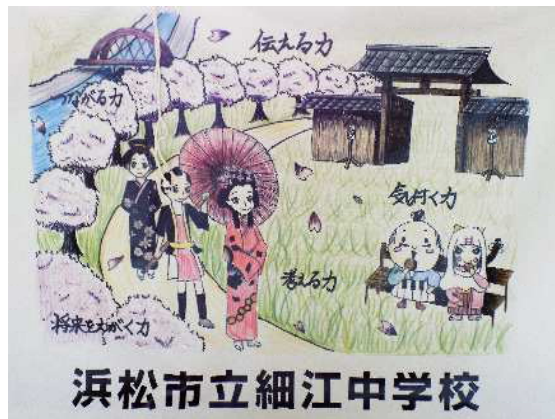 伝える力
つながる力
気付く力
考える力
将来をえがく力
浜松市立細江中学校